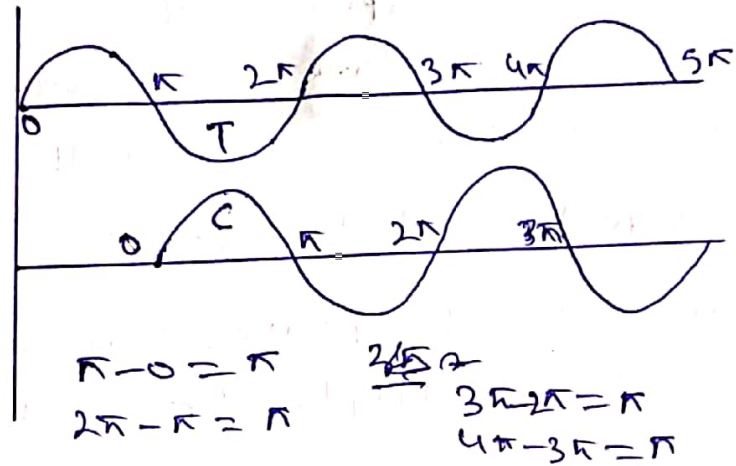 0 π 2π 3π 4π 5π
T
0 C π 2π 3π
π-0=π
2π-π=π
3π-2π=π
4π-3π=π